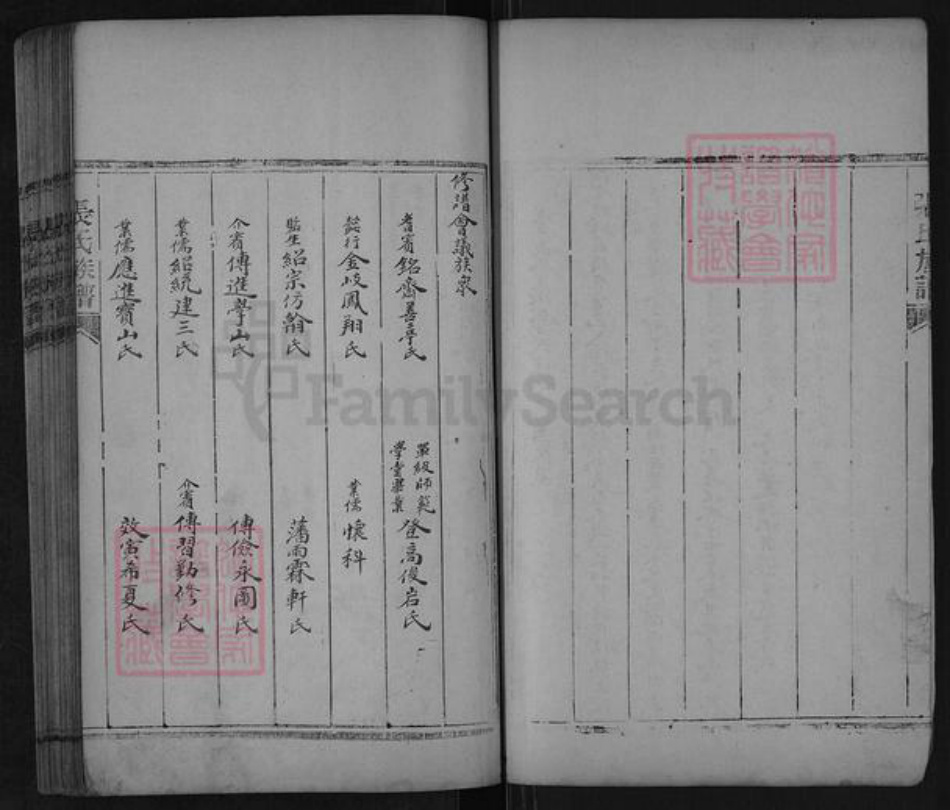 修譜會議族衆
耆賓銘齋善亭氏
單級師範學堂畢業登高俊岩氏
懿行金岐鳳翔氏
業儒懷科
監生紹宗仿翰氏
藩雨霖軒氏
介賓傳進學山氏
傅儉永圖氏
業儒紹統建三氏
介賓傅習勤修氏
業儒應進賓山氏
效寅希夏氏
張氏族譜
FamilySearch